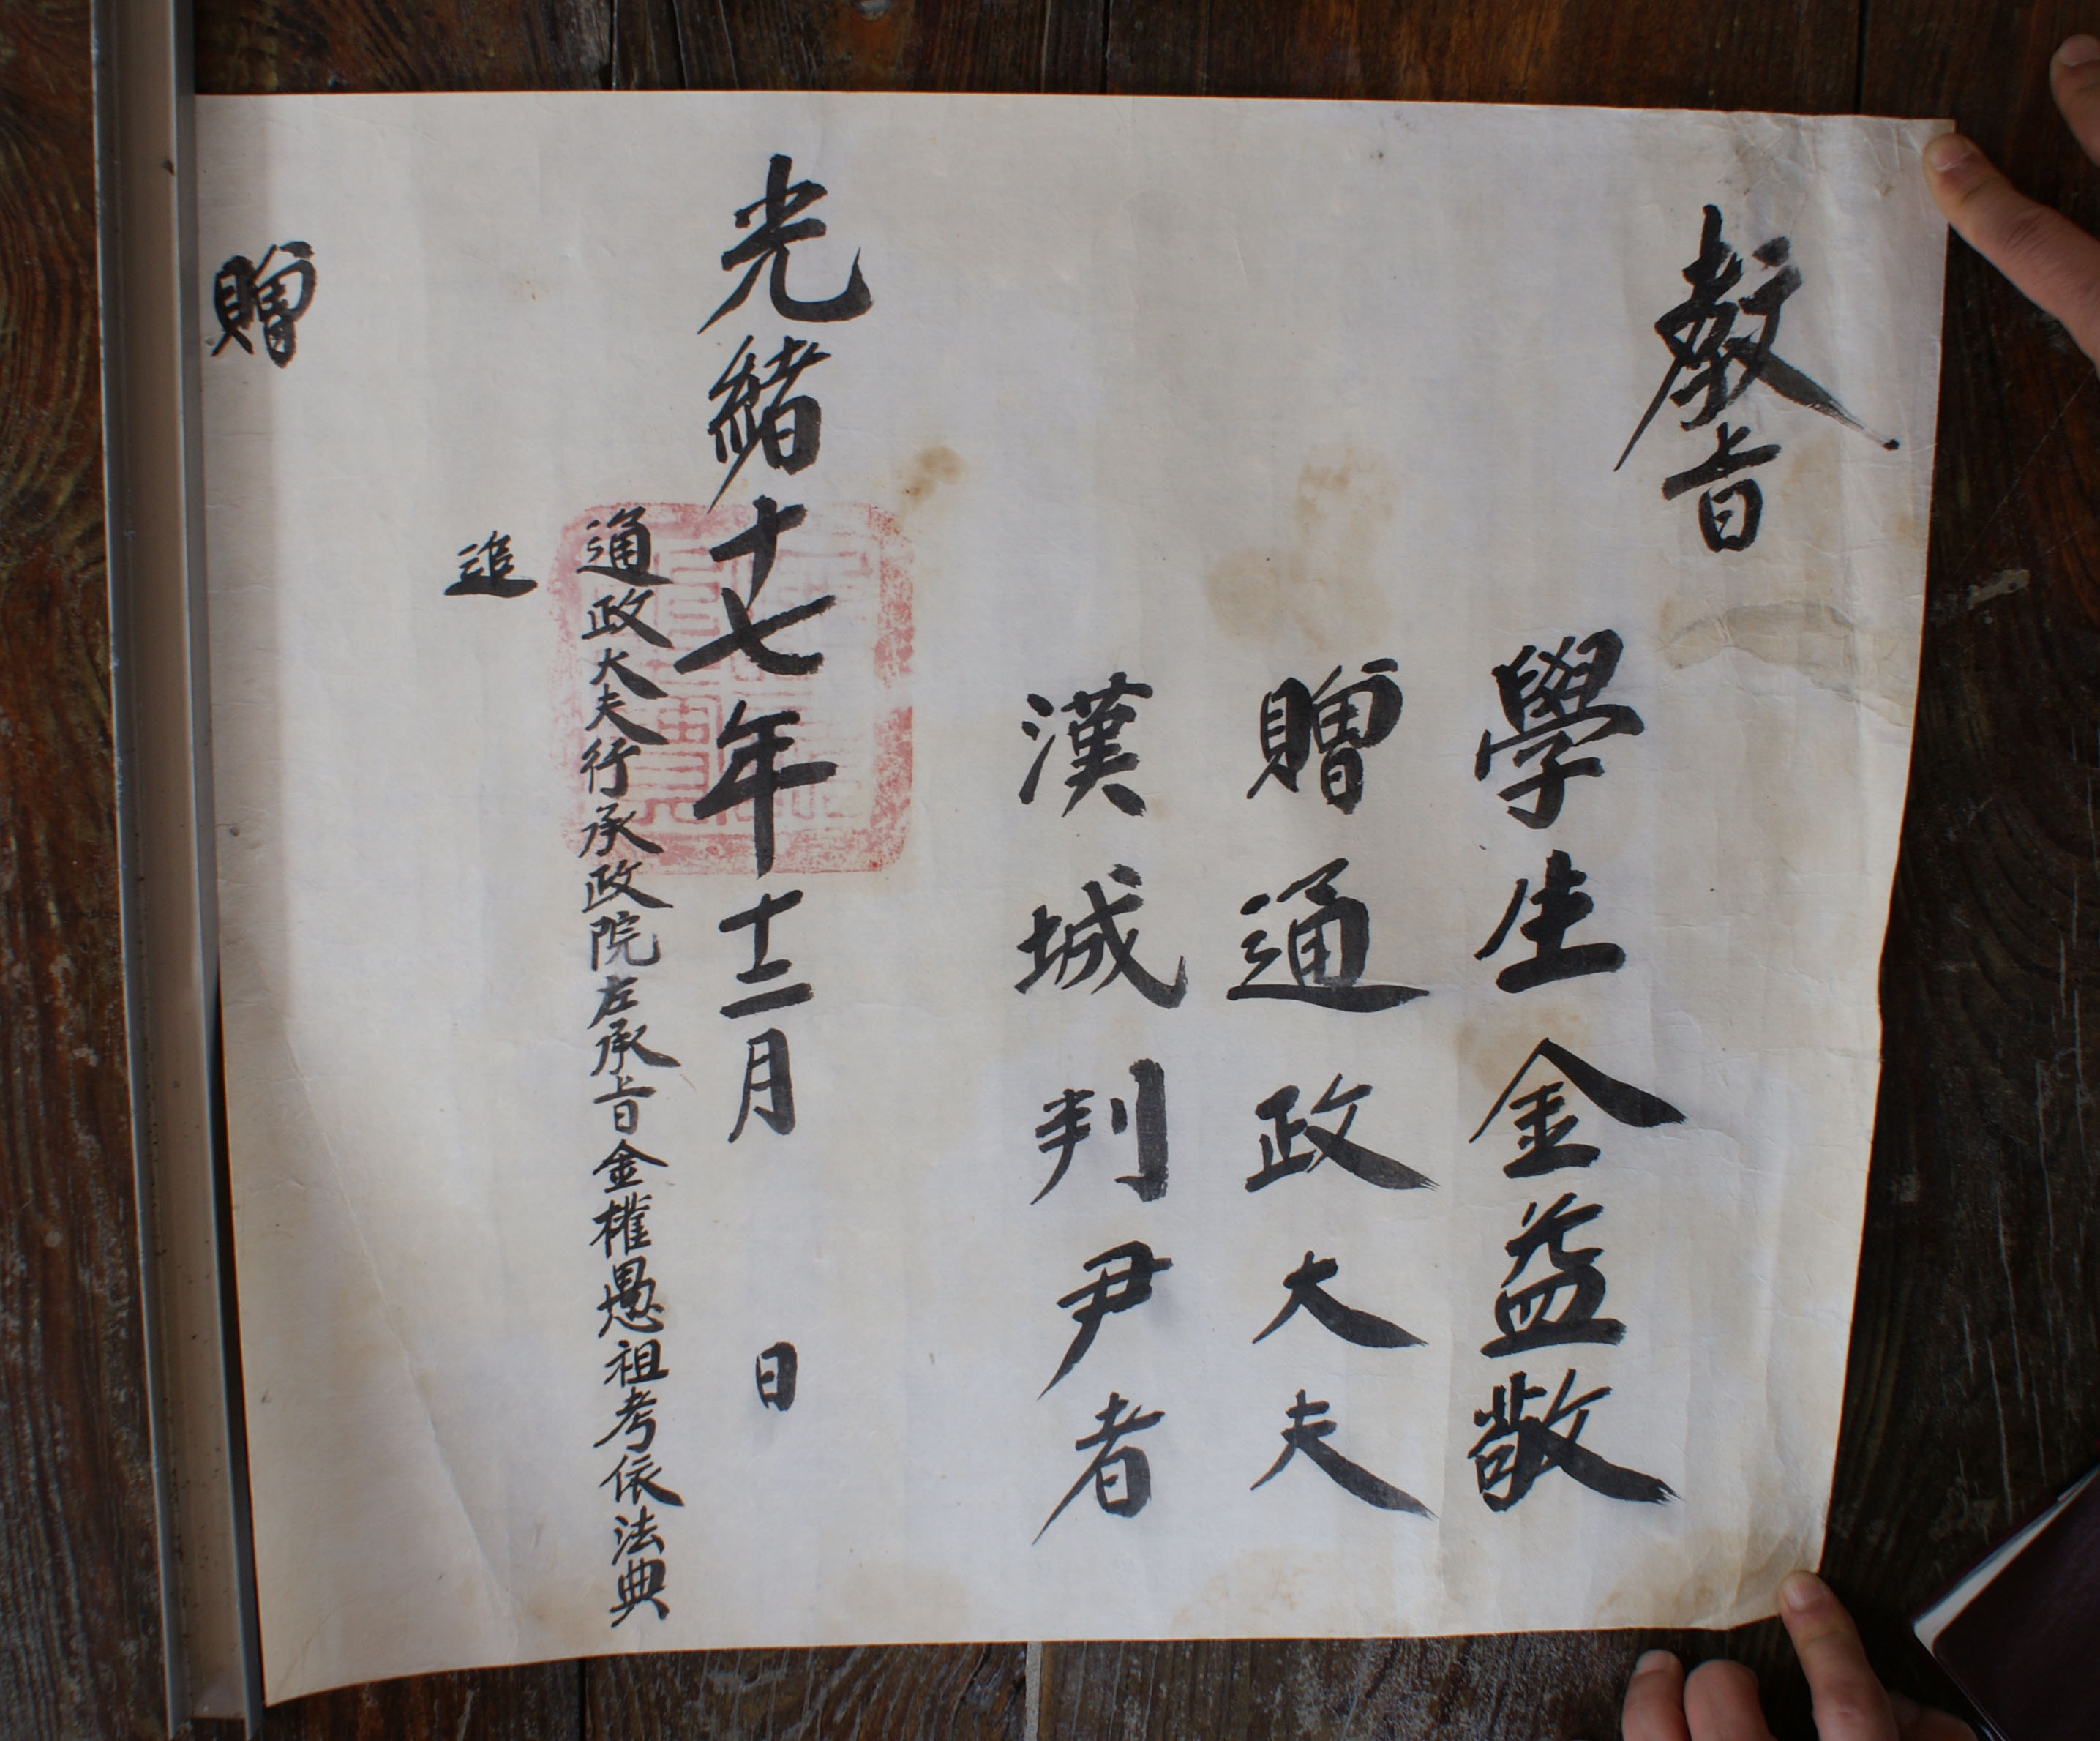 敎旨
學生金益敬
贈通政大夫
漢城判尹者
光緖十七年十二月 日
通政大夫行承政院左承旨金權愚祖考依法典
追
贈